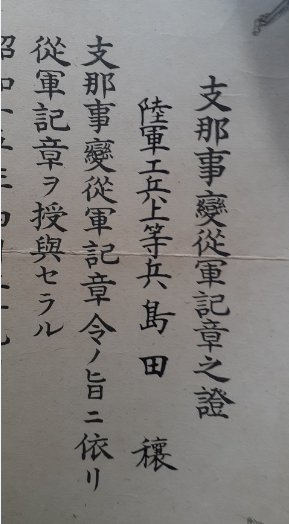 支那事變從軍記章之證
陸軍工兵上等兵島田穰
支那事變從軍記章令ノ旨ニ依リ
從軍記章ヲ授與セラル
昭和十五年四月二十九